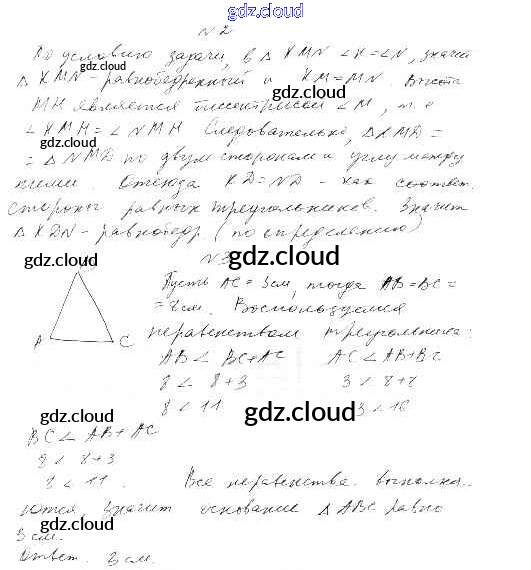 gdz.cloud
№2
По условию задачи, в △ KMN ∠K=∠N, значит
△ KMN - равнобедренный и KM = MN. Высота
MH является биссектрисой ∠M, т. е
∠KMH = ∠NMH Следовательно, △KMD =
gdz.cloud
= △NMD по двум сторонам и углу между
gdz.cloud
ними. Отсюда KD = ND - как соответ.
стороны равных треугольников. Значит
△ KDN - равнобедр (по определению)
gdz.cloud
№3
gdz.cloud
Пусть AC = 3см, тогда AB = BC =
= 8см. Воспользуемся
gdz.cloud
неравенством треугольника:
A C
AB < BC + AC AC < AB + BC
8 < 8 + 3 3 < 8 + 8
8 < 11 3 < 16
gdz.cloud
gdz.cloud
BC < AB + AC
8 < 8 + 3
8 < 11. Все неравенства выполня..
gdz.cloud
ются, значит основание △ ABC равно
gdz.cloud
3 см.
Ответ. 3 см.
gdz.cloud